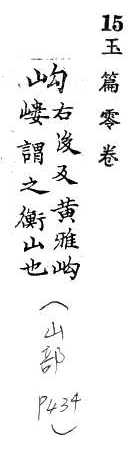 15玉篇零卷
岣右後反黄雅岣
嶁謂之衡山也
(山部 P434)